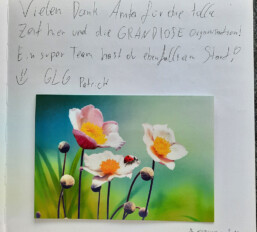 Vielen Dank Anita für die tolle
Zeit hier und die GRANDIOSE Organisation!
Ein super Team hast du ebenfalls am Stand!
GLG Patrick